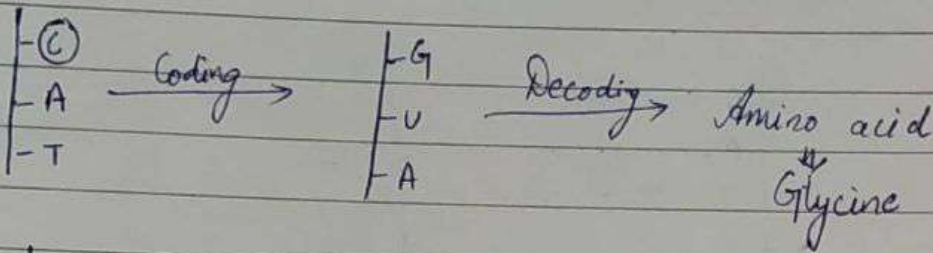 C Coding G
A Decoding Amino acid
T U
A Glycine